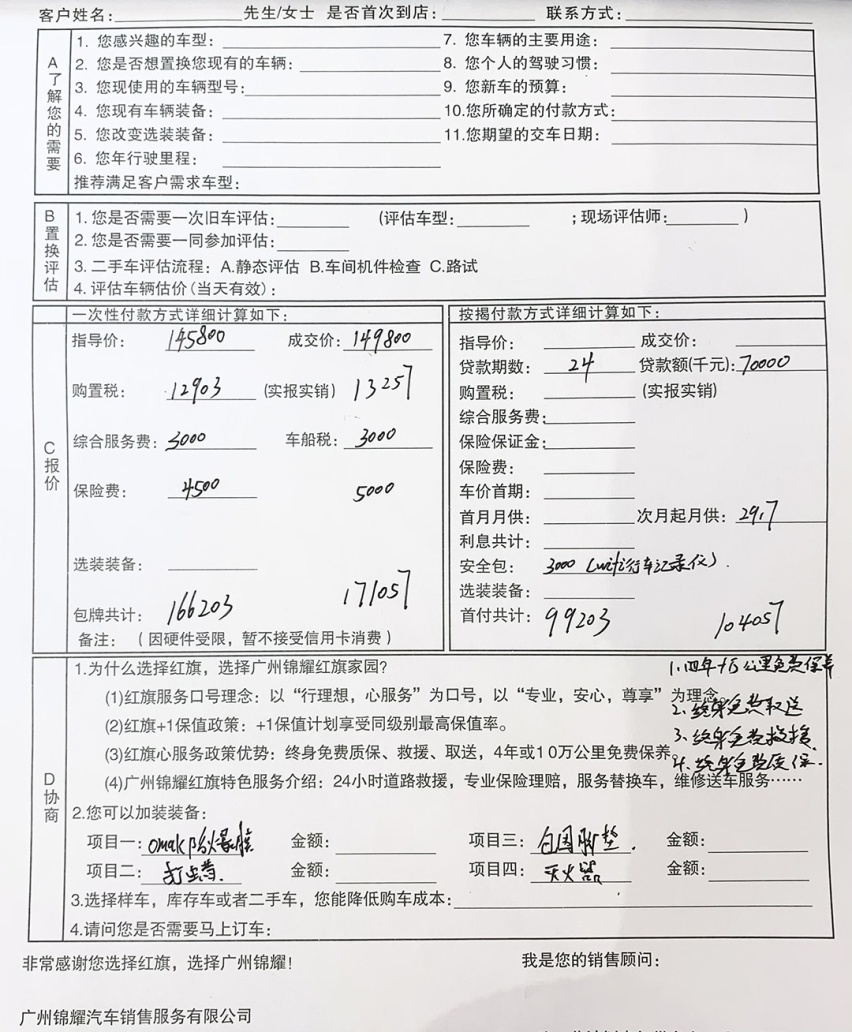 客户姓名: 先生/女士 是否首次到店: 联系方式:
A了解您的需要
1. 您感兴趣的车型: 7. 您车辆的主要用途:
2. 您是否想置换您现有的车辆: 8. 您个人的驾驶习惯:
3. 您现使用的车辆型号: 9. 您新车的预算:
4. 您现有车辆装备: 10.您所确定的付款方式:
5. 您改变选装装备: 11.您期望的交车日期:
6. 您年行驶里程:
推荐满足客户需求车型:
B置换评估
1. 您是否需要一次旧车评估: (评估车型: ;现场评估师: )
2. 您是否需要一同参加评估:
3. 二手车评估流程: A.静态评估 B.车间机件检查 C.路试
4. 评估车辆估价(当天有效):
C报价
一次性付款方式详细计算如下:
指导价: 145800 成交价: 149800
购置税: 12903 (实报实销) 13257
综合服务费: 3000 车船税: 3000
保险费: 4500 5000
选装装备:
包牌共计: 166203 171057
备注: (因硬件受限,暂不接受信用卡消费)
按揭付款方式详细计算如下:
指导价: 成交价:
贷款期数: 24 贷款额(千元): 70000
购置税: (实报实销)
综合服务费:
保险保证金:
保险费:
车价首期:
首月月供: 次月起月供: 2917
利息共计:
安全包: 3000 (wifi行车记录仪).
选装装备:
首付共计: 99203 104057
D协商
1.为什么选择红旗,选择广州锦耀红旗家园? 1.四年十万公里免费保养
(1)红旗服务口号理念: 以“行理想,心服务”为口号,以“专业,安心,尊享”为理念。
2.终身免费取送
(2)红旗+1保值政策: +1保值计划享受同级别最高保值率。
3.终身免费救援.
(3)红旗心服务政策优势: 终身免费质保、救援、取送,4年或10万公里免费保养。
4.终身免费质保.
(4)广州锦耀红旗特色服务介绍: 24小时道路救援,专业保险理赔,服务替换车,维修送车服务……
2.您可以加装装备:
项目一: 防爆膜 金额: 项目三: 包围脚垫. 金额:
项目二: 金额: 项目四: 灭火器 金额:
3.选择样车,库存车或者二手车,您能降低购车成本:
4.请问您是否需要马上订车:
非常感谢您选择红旗,选择广州锦耀! 我是您的销售顾问:
广州锦耀汽车销售服务有限公司